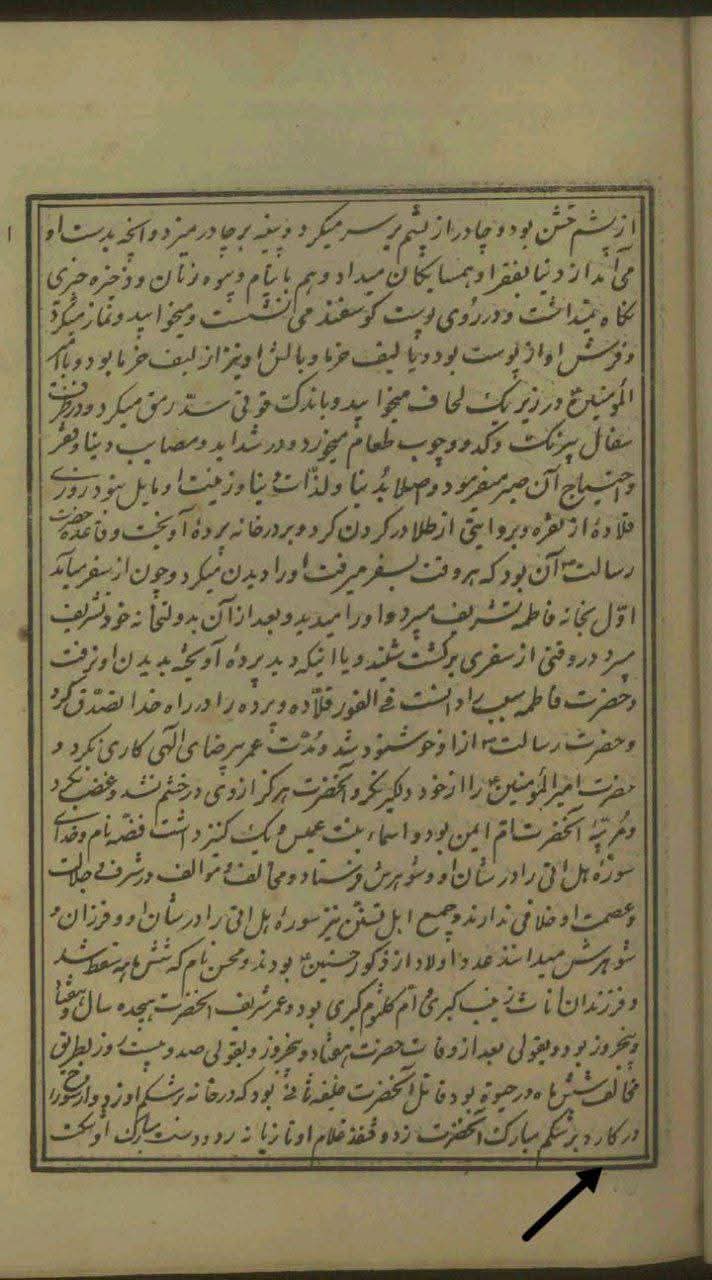 از پشم خشن بود و چادر از پشم بر سر میکرد و پینه بر چادر میزد و آنچه بدست او
می‌آمد از دنیا بفقرا و همسایکان میداد و هم بایتام و بیوه زنان و ذخیره چیزی
نکاه نمیداشت و در روی پوست کوسفند می نشست و میخوابید و نماز میکرد
و فرش او از پوست بود و یا لیف خرما و بالش او نیز از لیف خرما بود و با
المؤمنین ع در زیر یک لحاف میخوابید و باندک قوتی سدّ رمق میکرد و در ظرف
سفال پیزنک و کدو و چوب طعام میخورد و در شداید و مصایب دنیا و فقر
و احتیاج آن صبر میفرمود و اصلا بدنیا و لذّات دنیا و زینت او مایل نبود روزی
قلادهٔ از نقره و بروایتی از طلا در کردن کرد و بر در خانه پردهٔ آویخت و قاعده حضرت
رسالت ص آن بود که هر وقت بسفر میرفت او را دیدن میکرد و چون از سفر میآمد
اوّل بخانه فاطمه تشریف میبرد و او را میدید و بعد از آن بدولتخانه خود تشریف
میبرد در وقتی از سفری برکشت شنید و یا اینکه دید پردهٔ آویخته بدیدن او نرفت
حضرت فاطمه سبب را دانست فی الفور قلّاده و پرده را در راه خدا تصدّق کرد
و حضرت رسالت ص از او خوشنود شد و مدّت عمر بیرضای الهی کاری نکرد و
حضرت امیر المؤمنین ع را از خود دلکیر نکرد و آنحضرت هرکز از وی در خشم نشد و غضب نکرد
و مربیّهٔ آنحضرت ام ایمن بود و اسماء بنت عمیس و یک کنیز داشت فضّه نام و خدای
سورهٔ هل اتی را در شان او و شوهرش فرستاد و مخالف و موالف در شرف و جلالت
و عصمت او خلافی ندارند و جمیع اهل تسنّن نیز سورهٔ هل اتی را در شان او و فرزندان و
شوهرش میدانند عدد اولاد از ذکور حسنین ع بودند و محسن نام که شش ماهه سقط شد
و فرزندان اناث زینب کبری و ام کلثوم کبری بود و عمر شریف آنحضرت هیجده سال و هفتاد
و پنجروز بود و بقولی بعد از وفات حضرت هفتاد و پنجروز و بقولی صد و بیست روز بطریق
مخالف شش ماه در حیوة بود قاتل آنحضرت خلیفه ثانی بود که در خانه بر شکم او زد و
در کار د بر شکم مبارک آنحضرت زد و قنفذ غلام او تازیانه زد و دست مبارک او